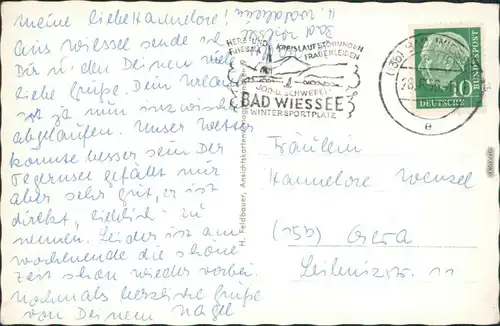 Meine liebe Hannelore!
Aus Wiessee sende ich
Dir u. den Deinen viele
liebe Grüße. Dein Urlaub
ist ja nun inzwischen
abgelaufen. Unser Wetter
könnte besser sein. Der
Tegernsee gefällt mir
aber sehr gut, er ist
direkt „lieblich" zu
nennen. Leider ist am
Wochenende die schöne
Zeit schon wieder vorbei.
Nochmals herzliche Grüße
von Deinem Nagel
H. Feldbauer, Ansichtskarten
HERZ- UND
RHEUMA
KREISLAUFSTÖRUNGEN
FRAUENLEIDEN
JOD- U. SCHWEFEL-
BAD WIESSEE
WINTERSPORTPLATZ
e
10
DEUTSCHE
BUNDESPOST
Fräulein
Hannelore Wensel
(15b) Gera
Leibnizstr. 11